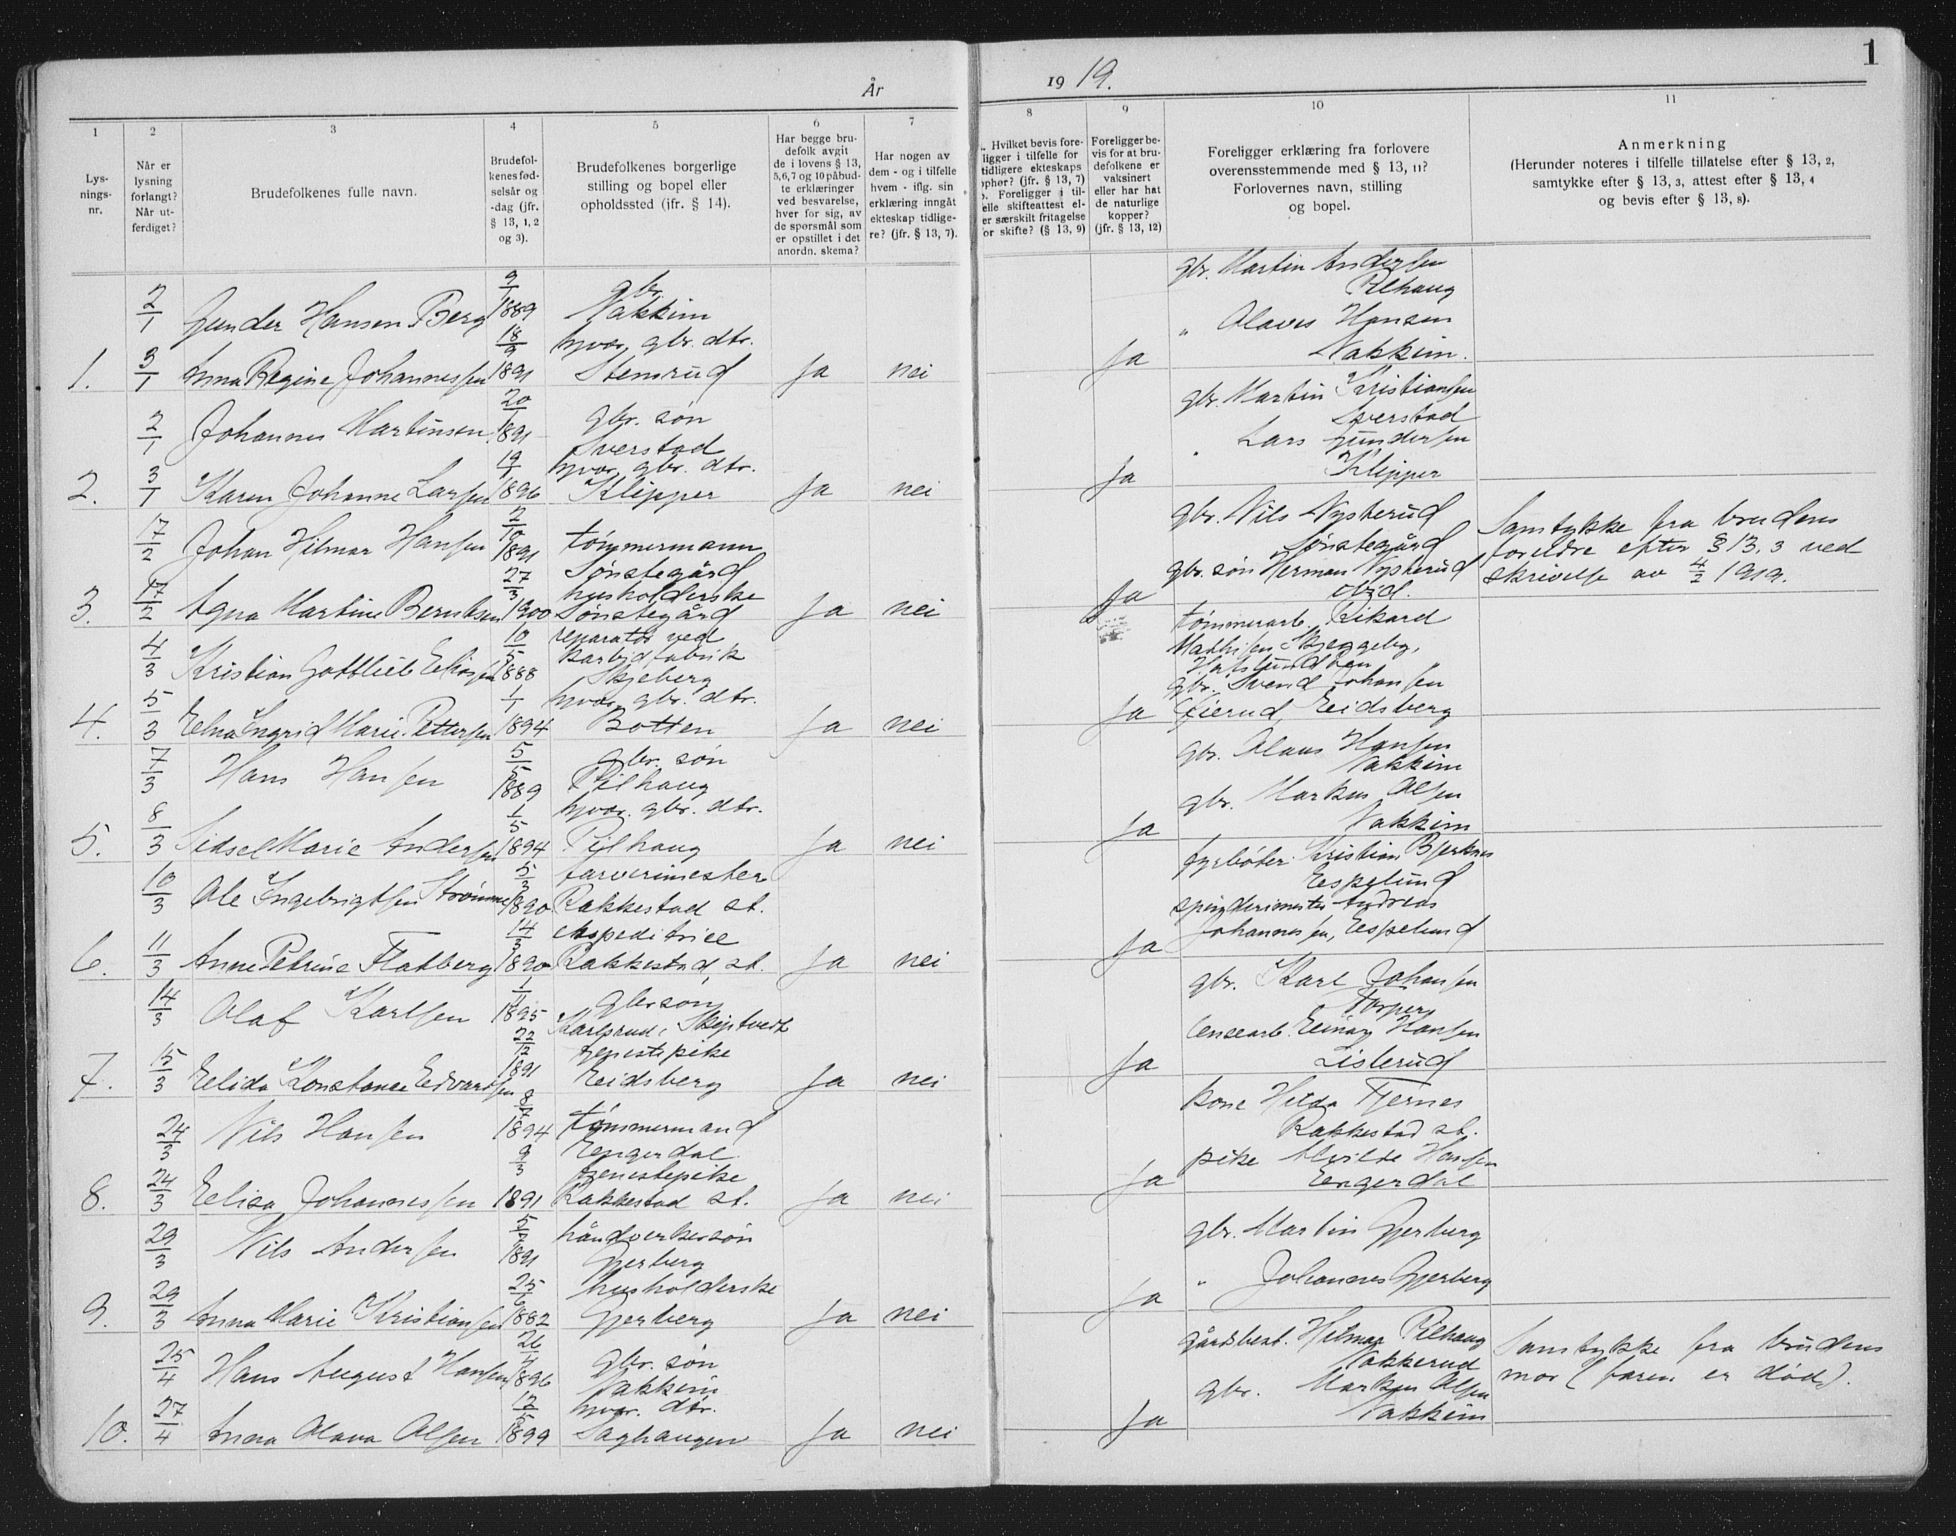 1
År
19 19.
1
2
3
4
5
6
7
8
9
10
11
Lys-
nings-
nr.
Når er
lysning
forlangt?
Når ut-
ferdiget?
Brudefolkenes fulle navn.
Brudefol-
kenes fød-
selsår og
-dag (jfr.
§ 13, 1, 2
og 3).
Brudefolkenes borgerlige
stilling og bopel eller
opholdssted (ifr. § 14).
Har begge bru-
defolk avgit
de i lovens § 13,
5,6,7 og 10 påbud-
te erklæringer
ved besvarelse,
hver for sig, av
de spørsmål som
er opstillet i det
anordn. skema?
Har nogen av
dem - og i tilfelle
hvem - iflg. sin
erklæring inngåt
ekteskap tidlige-
re? (jfr. § 13, 7).
Hvilket bevis fore-
ligger i tilfelle for
tidligere ekteskaps
ophør? (jfr. § 13, 7)
Foreligger i til-
elle skifteattest el-
er særskilt fritagelse
or skifte? (§ 13, 9)
Foreligger be-
vis for at bru-
defolkene er
vaksinert
eller har hat
de naturlige
kopper?
(jfr. § 13, 12)
Foreligger erklæring fra forlovere
overensstemmende med § 13, 11?
Forlovernes navn, stilling
og bopel.
Anmerkning
(Herunder noteres i tilfelle tillatelse efter § 13, 2,
samtykke efter § 13, 3, attest efter § 13, 4
og bevis efter § 13, 8).
2/1 Gunder Hansen Berg 9/1 1889 gbr. Nakkim
1. 3/1 Anna Regine Johannessen 18/9 1891 hjvær. gbr. dtr. Stensrud Ja nei Ja
gbr. Martin Andersen
Pilhaug
" Olaves Hansen
Nakkim.
2/1 Johannes Martinsen 20/1 1891 gbr. søn Sverstad
2. 3/1 Karen Johanne Larsen 19/1 1896 hjvær. gbr. dtr. Klipper Ja nei Ja
gbr. Martin Kristiansen
Sverstad
" Lars Gundersen
Klipper
17/2 Johan Hilmar Hansen 2/10 1891 tømmermann Sønstegård
3. 17/2 Agna Martine Berntsen 27/3 1900 husholderske Sønstegård Ja nei Ja
gbr. Nils Nysterud
Sønstegård
gbr. søn Herman Nysterud
ibid.
Samtykke fra brudens
foreldre efter § 13, 3 ved
skrivelse av 4/2 1919.
4/3 Kristian Gottlieb 10/5 1888 reparatør ved karbidfabrik Skjeberg
4. 5/3 Elna Ingrid Marie Pettersen 1/1 1894 hjvær. gbr. dtr. Botten Ja nei Ja
tømmerarb. Rikard
Mathisen Skjeggeby,
Hafslundsøen
gbr. Svend Johansen
Gjerud, Eidsberg
7/3 Hans Hansen 5/5 1889 gbr. søn Pilhaug
5. 8/3 Sidsel Marie Andersen 1/5 1894 hjvær. gbr. dtr. Pilhaug Ja nei Ja
gbr. Olaus Hansen
Nakkim
gbr. Markus Olsen
Nakkim
10/3 Ole Ingebrigtsen Strømme 5/3 1890 farverimester Rakkestad st.
6. 11/3 Anne Petrine Flatberg 14/3 1890 ekspeditrice Rakkestad st. Ja nei Ja
fyrbøter Kristian Bjerknes
Espelund
spinderimester Andreas
Johannesen, Espelund
14/3 Olaf Karlsen 1/11 1895 gbr søn Karlsrud, Skiptvedt
7. 15/3 Elida Konstance Edvardsen 22/12 1891 tjenestepike Eidsberg Ja nei Ja
gbr. Karl Johansen
Torper
lensearb. Einar Hansen
Listerud
24/3 Nils Hansen 8/7 1894 tømmermand Engerdal
8. 24/3 Elisa Johannessen 9/3 1891 tjenestepike Rakkestad st. Ja nei Ja
kone Hilda Tjernes
Rakkestad st.
pike Alvilde Hansen
Engerdal
29/3 Nils Andersen 1891 håndverkersøn Gjerberg
9. 29/3 Anna Marie Kristiansen 25/6 1882 husholderske Gjerberg Ja nei Ja
gbr. Martin Gjerberg
" Johannes Gjerberg
25/4 Hans August Hansen 26/4 1896 gbr. søn Nakkim
10. 27/4 Anna Olava Olsen 12/5 1899 hjvær. dtr. Saghaugen Ja nei Ja
gårdsbest. Hilmar Pilhaug
Nakkerud
gbr. Markus Olsen
Nakkim
Samtykke fra brudens
mor (faren er død).